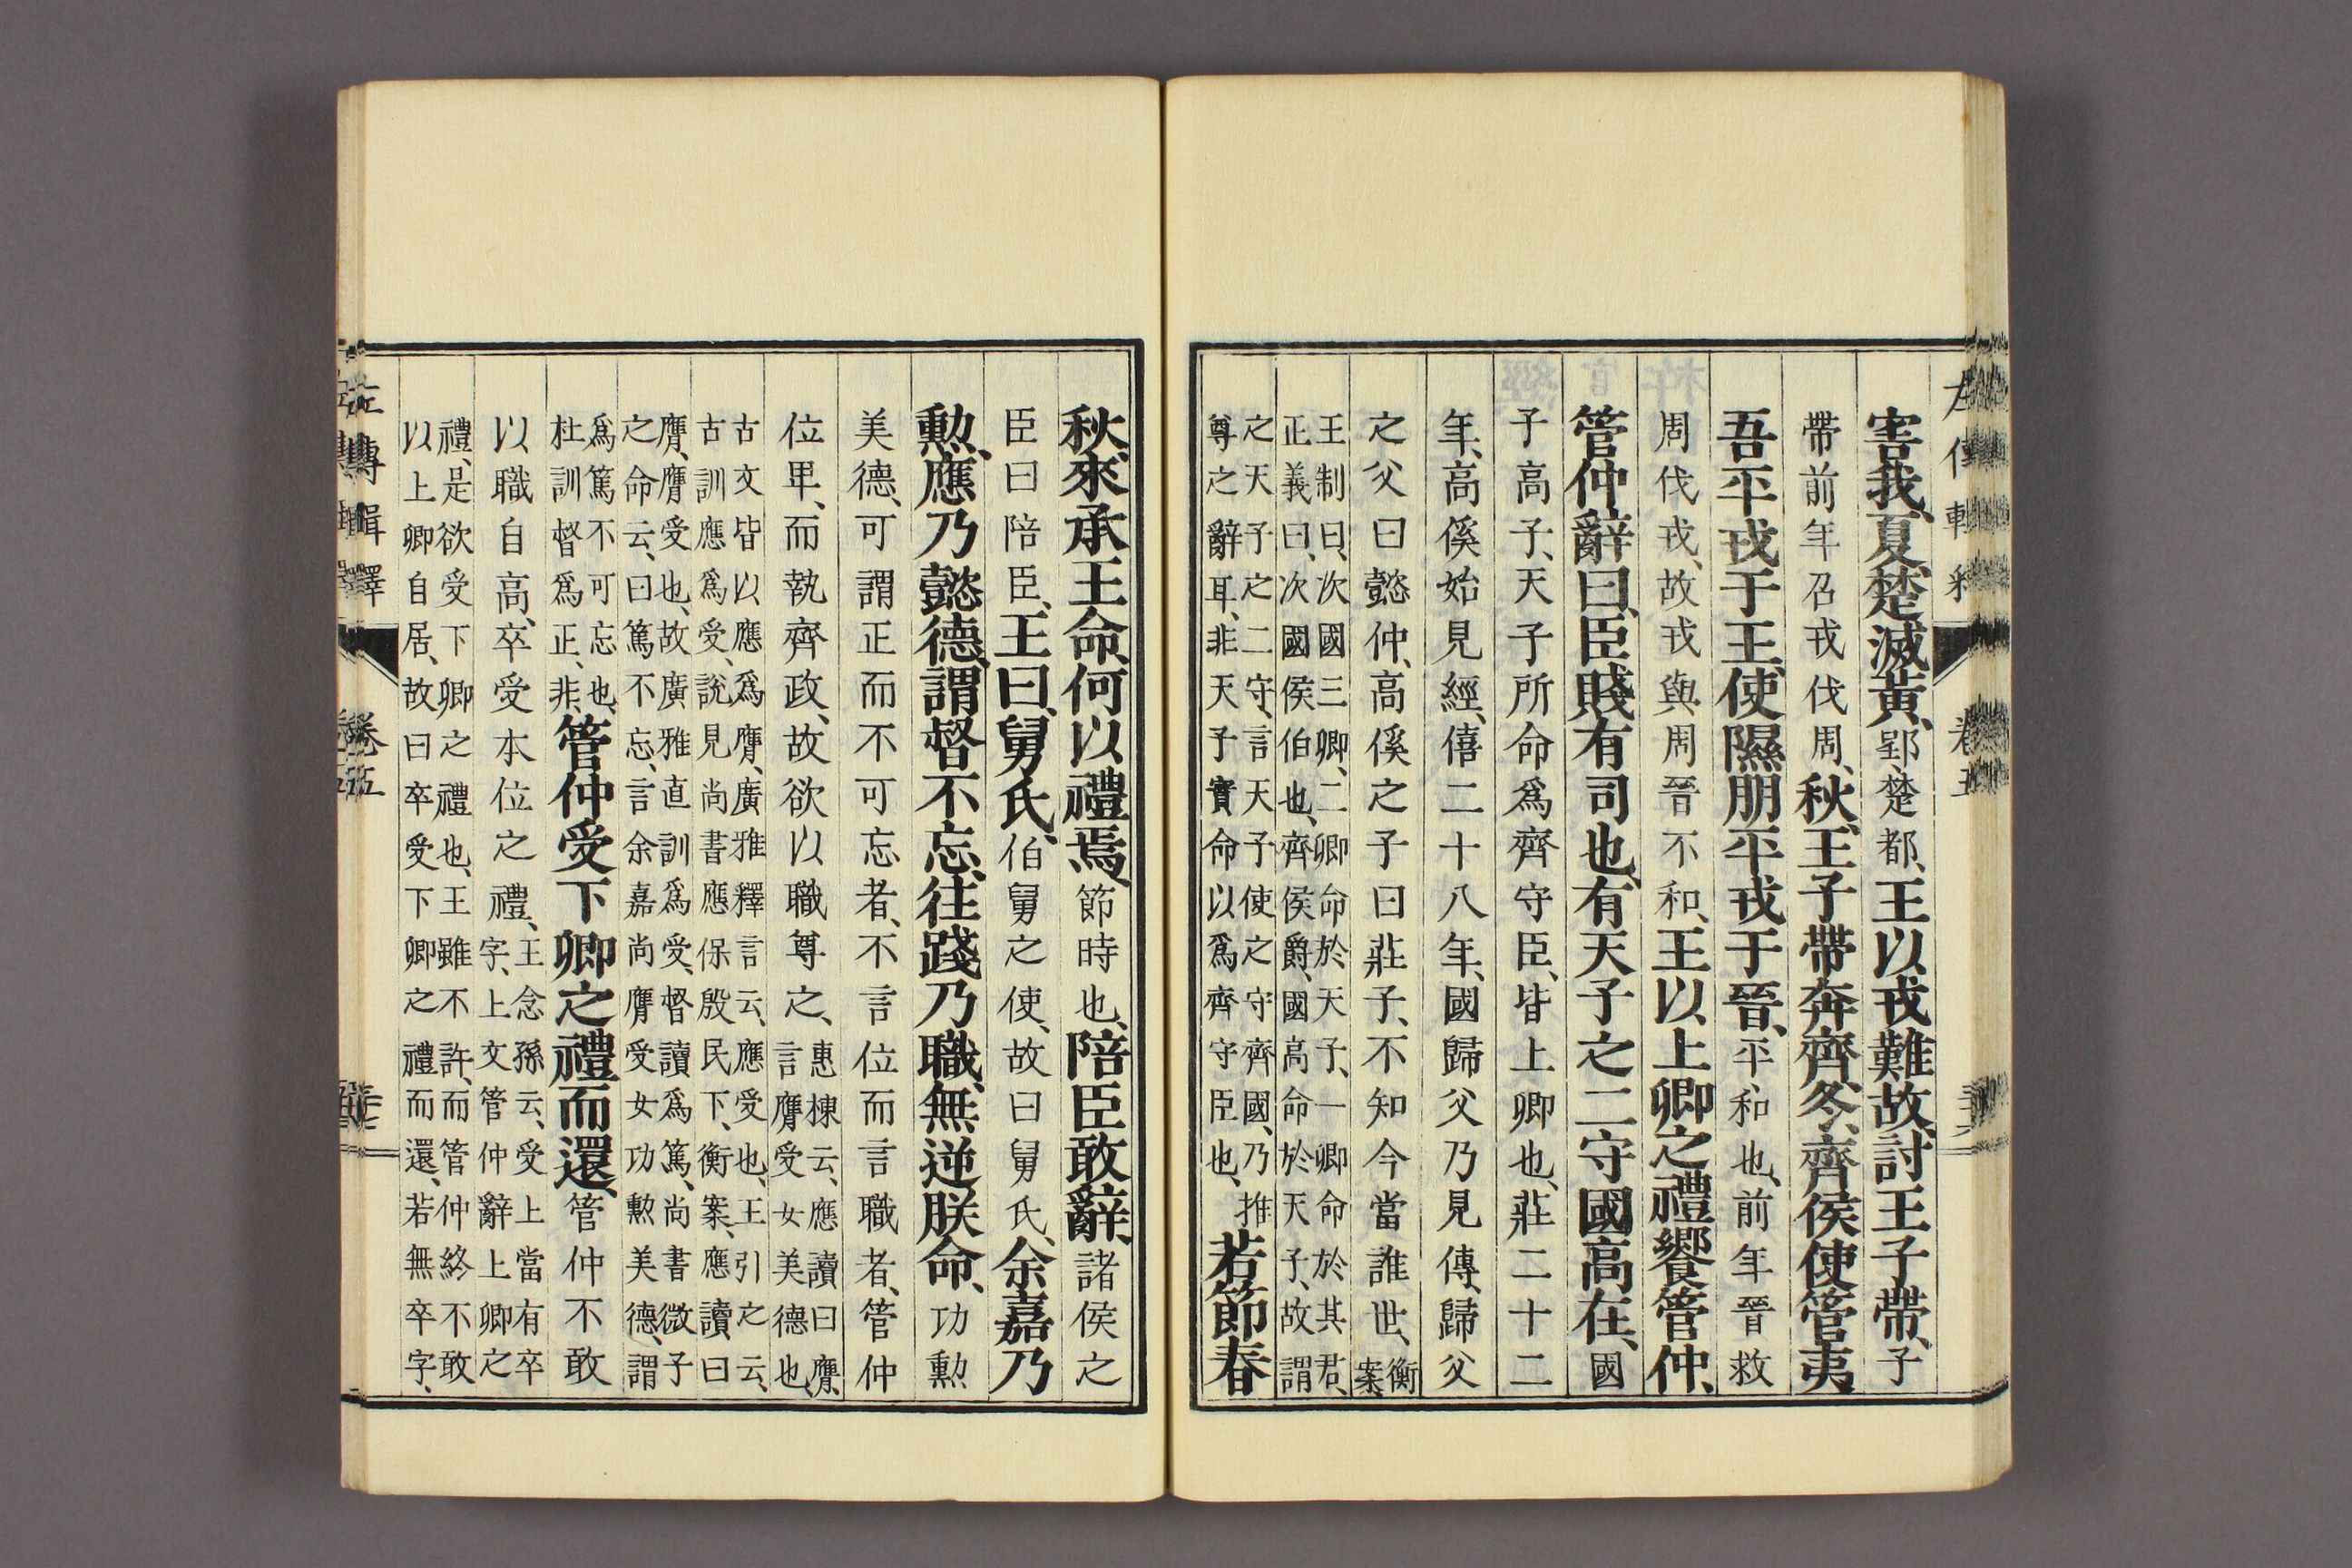 害我、夏、楚滅黃、郢、楚都、王以戎難故、討王子帶、子
帶前年召戎伐周、秋、王子帶奔齊、冬、齊侯使管夷
吾平戎于王、使隰朋平戎于晉、平、和也、前年晉救
周伐戎、故戎與周晉不和、王以上卿之禮饗管仲、
管仲辭曰、臣賤有司也、有天子之二守國高在、國
子高子、天子所命爲齊守臣、皆上卿也、莊二十二
年、高傒始見經、僖二十八年、國歸父乃見傳、歸父
之父曰懿仲、高傒之子曰莊子、不知今當誰世、衡
案、
王制曰、次國三卿、二卿命於天子、一卿命於其君、
正義曰、次國侯伯也、齊侯爵、國高命於天子、故謂
之天子之二守、言天子使之守齊國、乃推
尊之辭耳、非天子實命以爲齊守臣也、若節春
秋、來承王命、何以禮焉、節時也、陪臣敢辭、諸侯之
臣曰陪臣、王曰、舅氏、伯舅之使、故曰舅氏、余嘉乃
勳、應乃懿德、謂督不忘、往踐乃職、無逆朕命、功勳
美德、可謂正而不可忘者、不言位而言職者、管仲
位卑、而執齊政、故欲以職尊之、惠棟云、應讀曰膺、
言膺受女美德也、
古文皆以應爲膺、廣雅釋言云、應受也、王引之云、
古訓應爲受、說見尚書應保殷民下、衡案、應讀曰
膺、膺受也、故廣雅直訓爲受、督讀爲篤、尚書微子
之命云、曰篤不忘、言余嘉尚膺受女功勳美德、謂
爲篤不可忘也、
杜訓督爲正、非、管仲受下卿之禮而還、管仲不敢
以職自高、卒受本位之禮、王念孫云、受上當有卒
字、上文管仲辭上卿之
禮、是欲受下卿之禮也、王雖不許、而管仲終不敢
以上卿自居、故曰卒受下卿之禮而還、若無卒字、
左傳輯釋 卷五